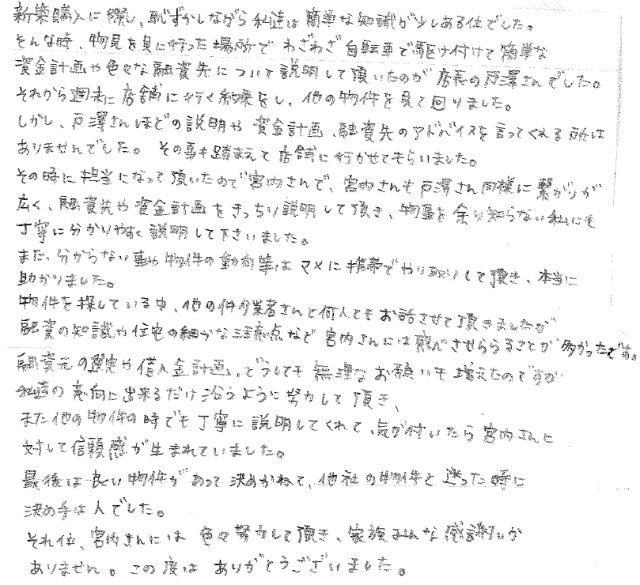 新築購入に際し、恥ずかしながら私達は簡単な知識が少しある位でした。
そんな時、物見を見に行った場所でわざわざ自転車で駆け付けて簡単な
資金計画や色々な融資先について説明して頂いたのが店長の戸澤さんでした。
それから週末に店舗に行く約束をし、他の物件を見て回りました。
しかし、戸澤さんほどの説明や資金計画、融資先のアドバイスを言ってくれる所は
ありませんでした。その事も踏まえて店舗に行かせてもらいました。
その時に担当になって頂いたのが宮内さんで、宮内さんも戸澤さん同様に繋がりが
広く、融資先や資金計画をきっちり説明して頂き、物事を余り知らない私にも
丁寧に分かりやすく説明して下さいました。
また、分からない事や物件の動向等はマメに携帯でやり取りして頂き、本当に
助かりました。
物件を探している中、他の仲介業者さんと何人ともお話させて頂きましたが
融資の知識や住宅の細かな注意点など宮内さんには感心させらることが多かったです。
融資元の選定や借入金計画、どうしても無理なお願いも増えたのですが
私達の意向に出来るだけ沿うように努力して頂き、
また他の物件の時でも丁寧に説明してくれて、気が付いたら宮内さんに
対して信頼感が生まれていました。
最後は良い物件があって決めかねて、他社の物件と迷った時に
決め手は人でした。
それ位、宮内さんには色々努力して頂き、家族みんな感謝しか
ありません。この度はありがとうございました。